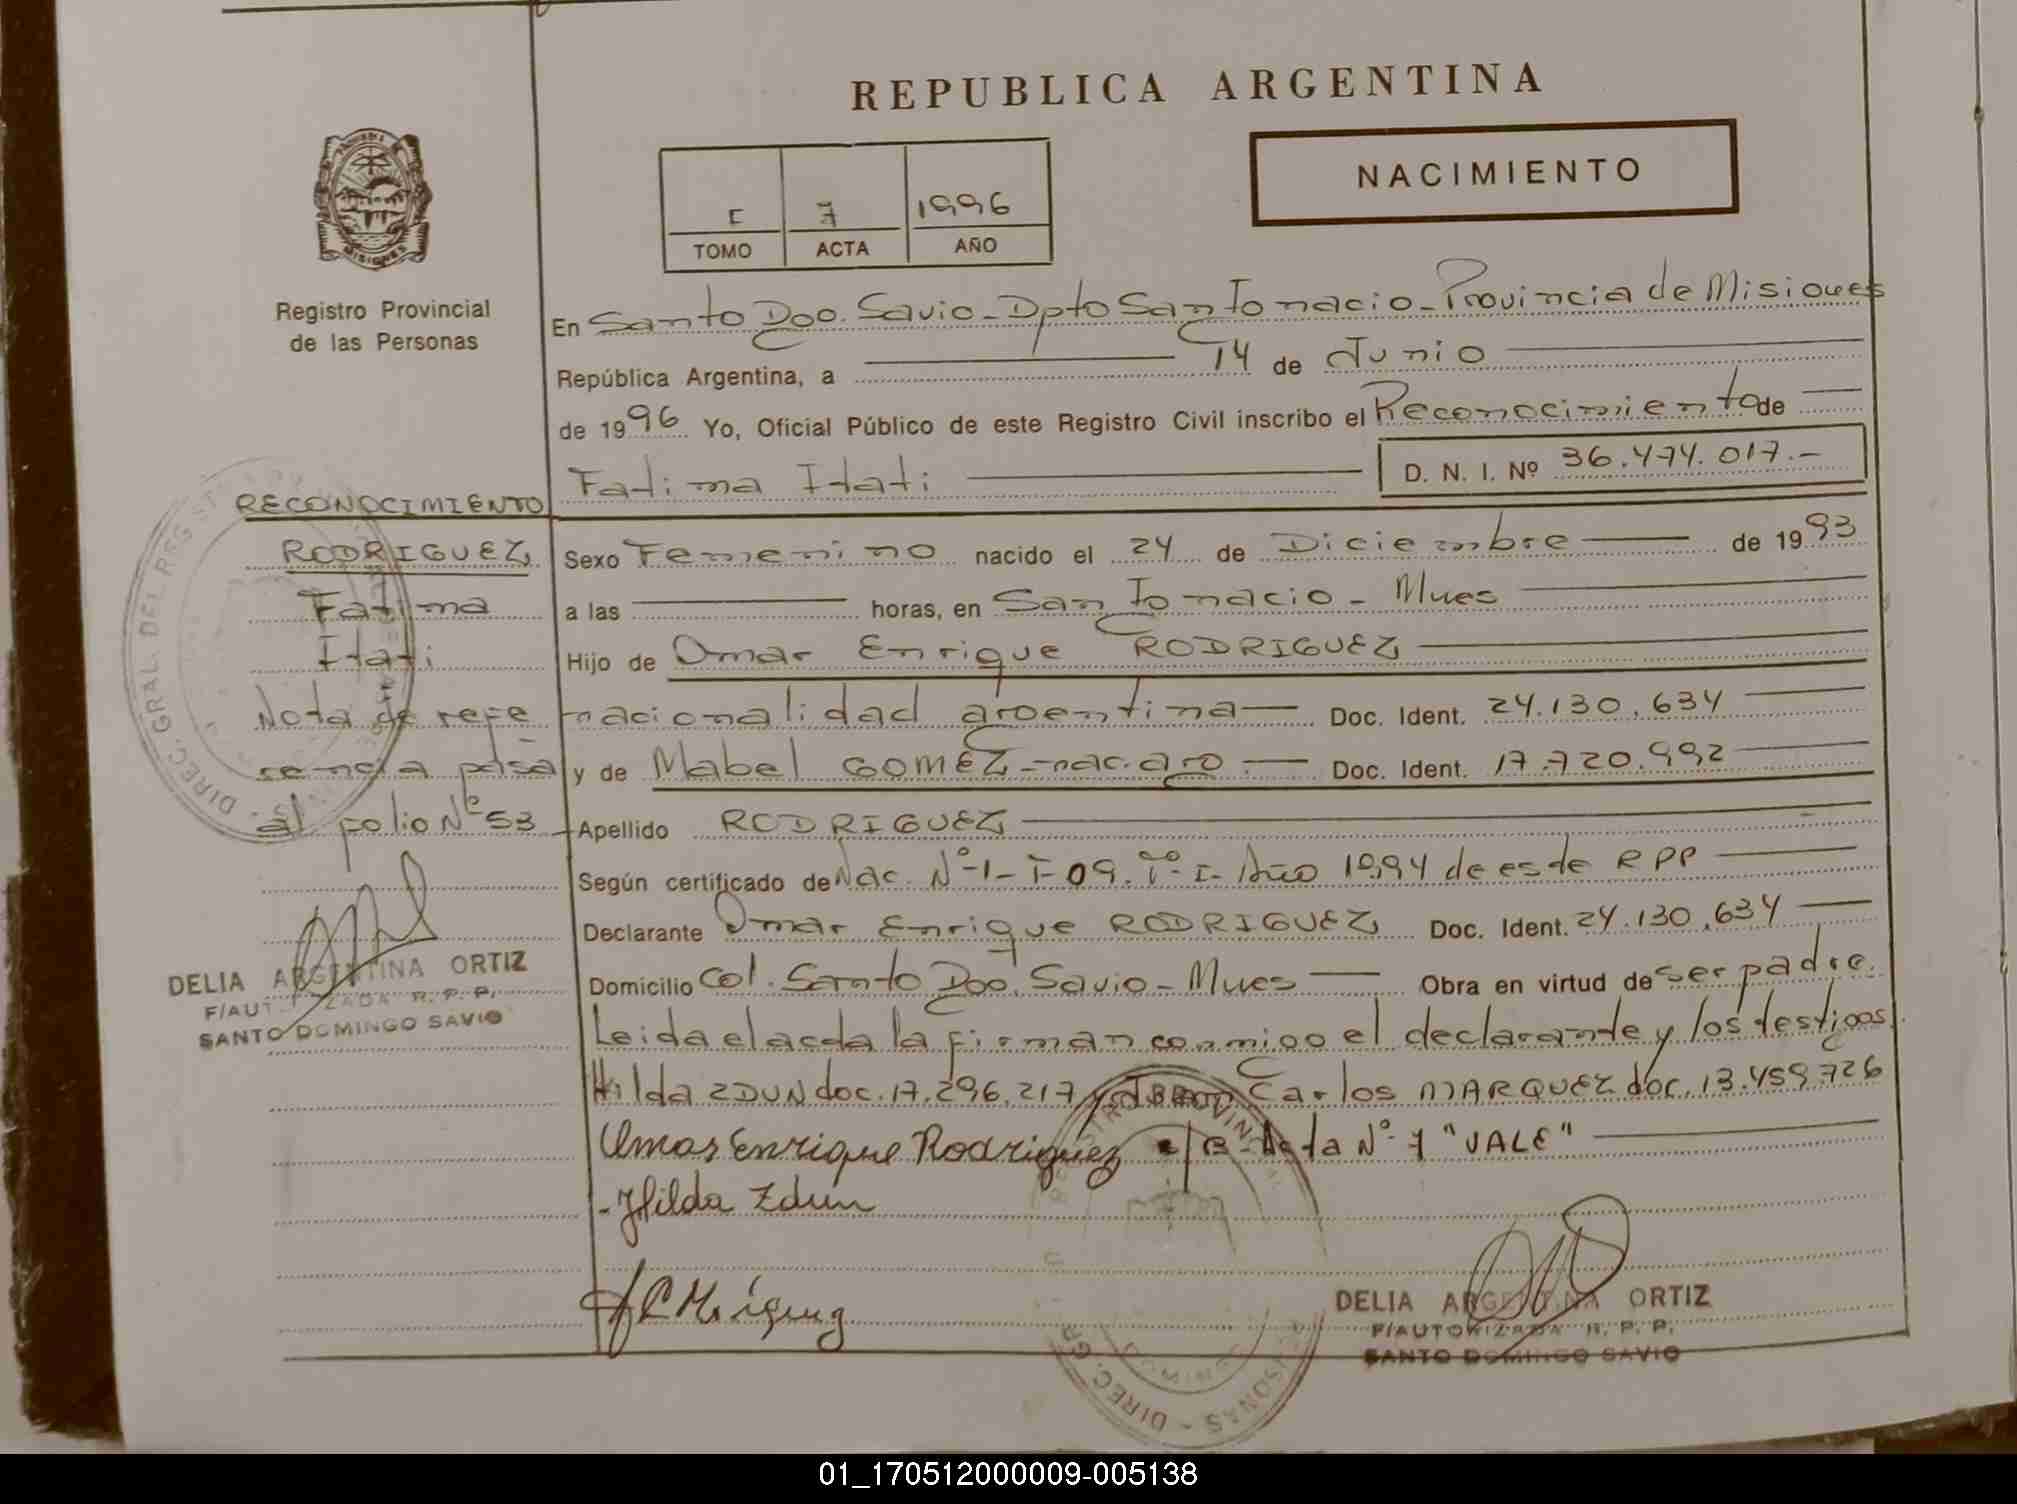 REPUBLICA ARGENTINA
NACIMIENTO
I 7 1996
TOMO ACTA AÑO
Registro Provincial
de las Personas
En Santo Dgo. Savio - Dpto San Ignacio - Provincia de Misiones
República Argentina, a 14 de Junio
de 1996 Yo, Oficial Público de este Registro Civil inscribo el Reconocimiento de
Fatima Itati D. N. I. Nº 36.474.017.-
RECONOCIMIENTO
RODRIGUEZ
Fatima
Itati
Nota de refe
rencia pasa
al folio Nº 53
DELIA ARGENTINA ORTIZ
F/AUTORIZADA R. P. P.
SANTO DOMINGO SAVIO
Sexo Femenino nacido el 24 de Diciembre de 1993
a las horas, en San Ignacio - Mnes
Hijo de Omar Enrique RODRIGUEZ
nacionalidad argentina Doc. Ident. 24.130.634
y de Mabel GOMEZ - nac. arg. Doc. Ident. 17.720.992
Apellido RODRIGUEZ
Según certificado de Nac. Nº 1 - Fº 09. Tº I - Año 1994 de este RPP
Declarante Omar Enrique RODRIGUEZ Doc. Ident. 24.130.634
Domicilio Col. Santo Dgo. Savio - Mnes Obra en virtud de ser padre.
Leida el acta la firman conmigo el declarante y los testigos
Hilda ZDUN doc. 17.296.217 y Carlos MARQUEZ doc. 13.459.726
Omar Enrique Rodriguez Acta Nº 7 "VALE"
- Hilda Zdun
DELIA ARGENTINA ORTIZ
F/AUTORIZADA R. P. P.
SANTO DOMINGO SAVIO
01_170512000009-005138